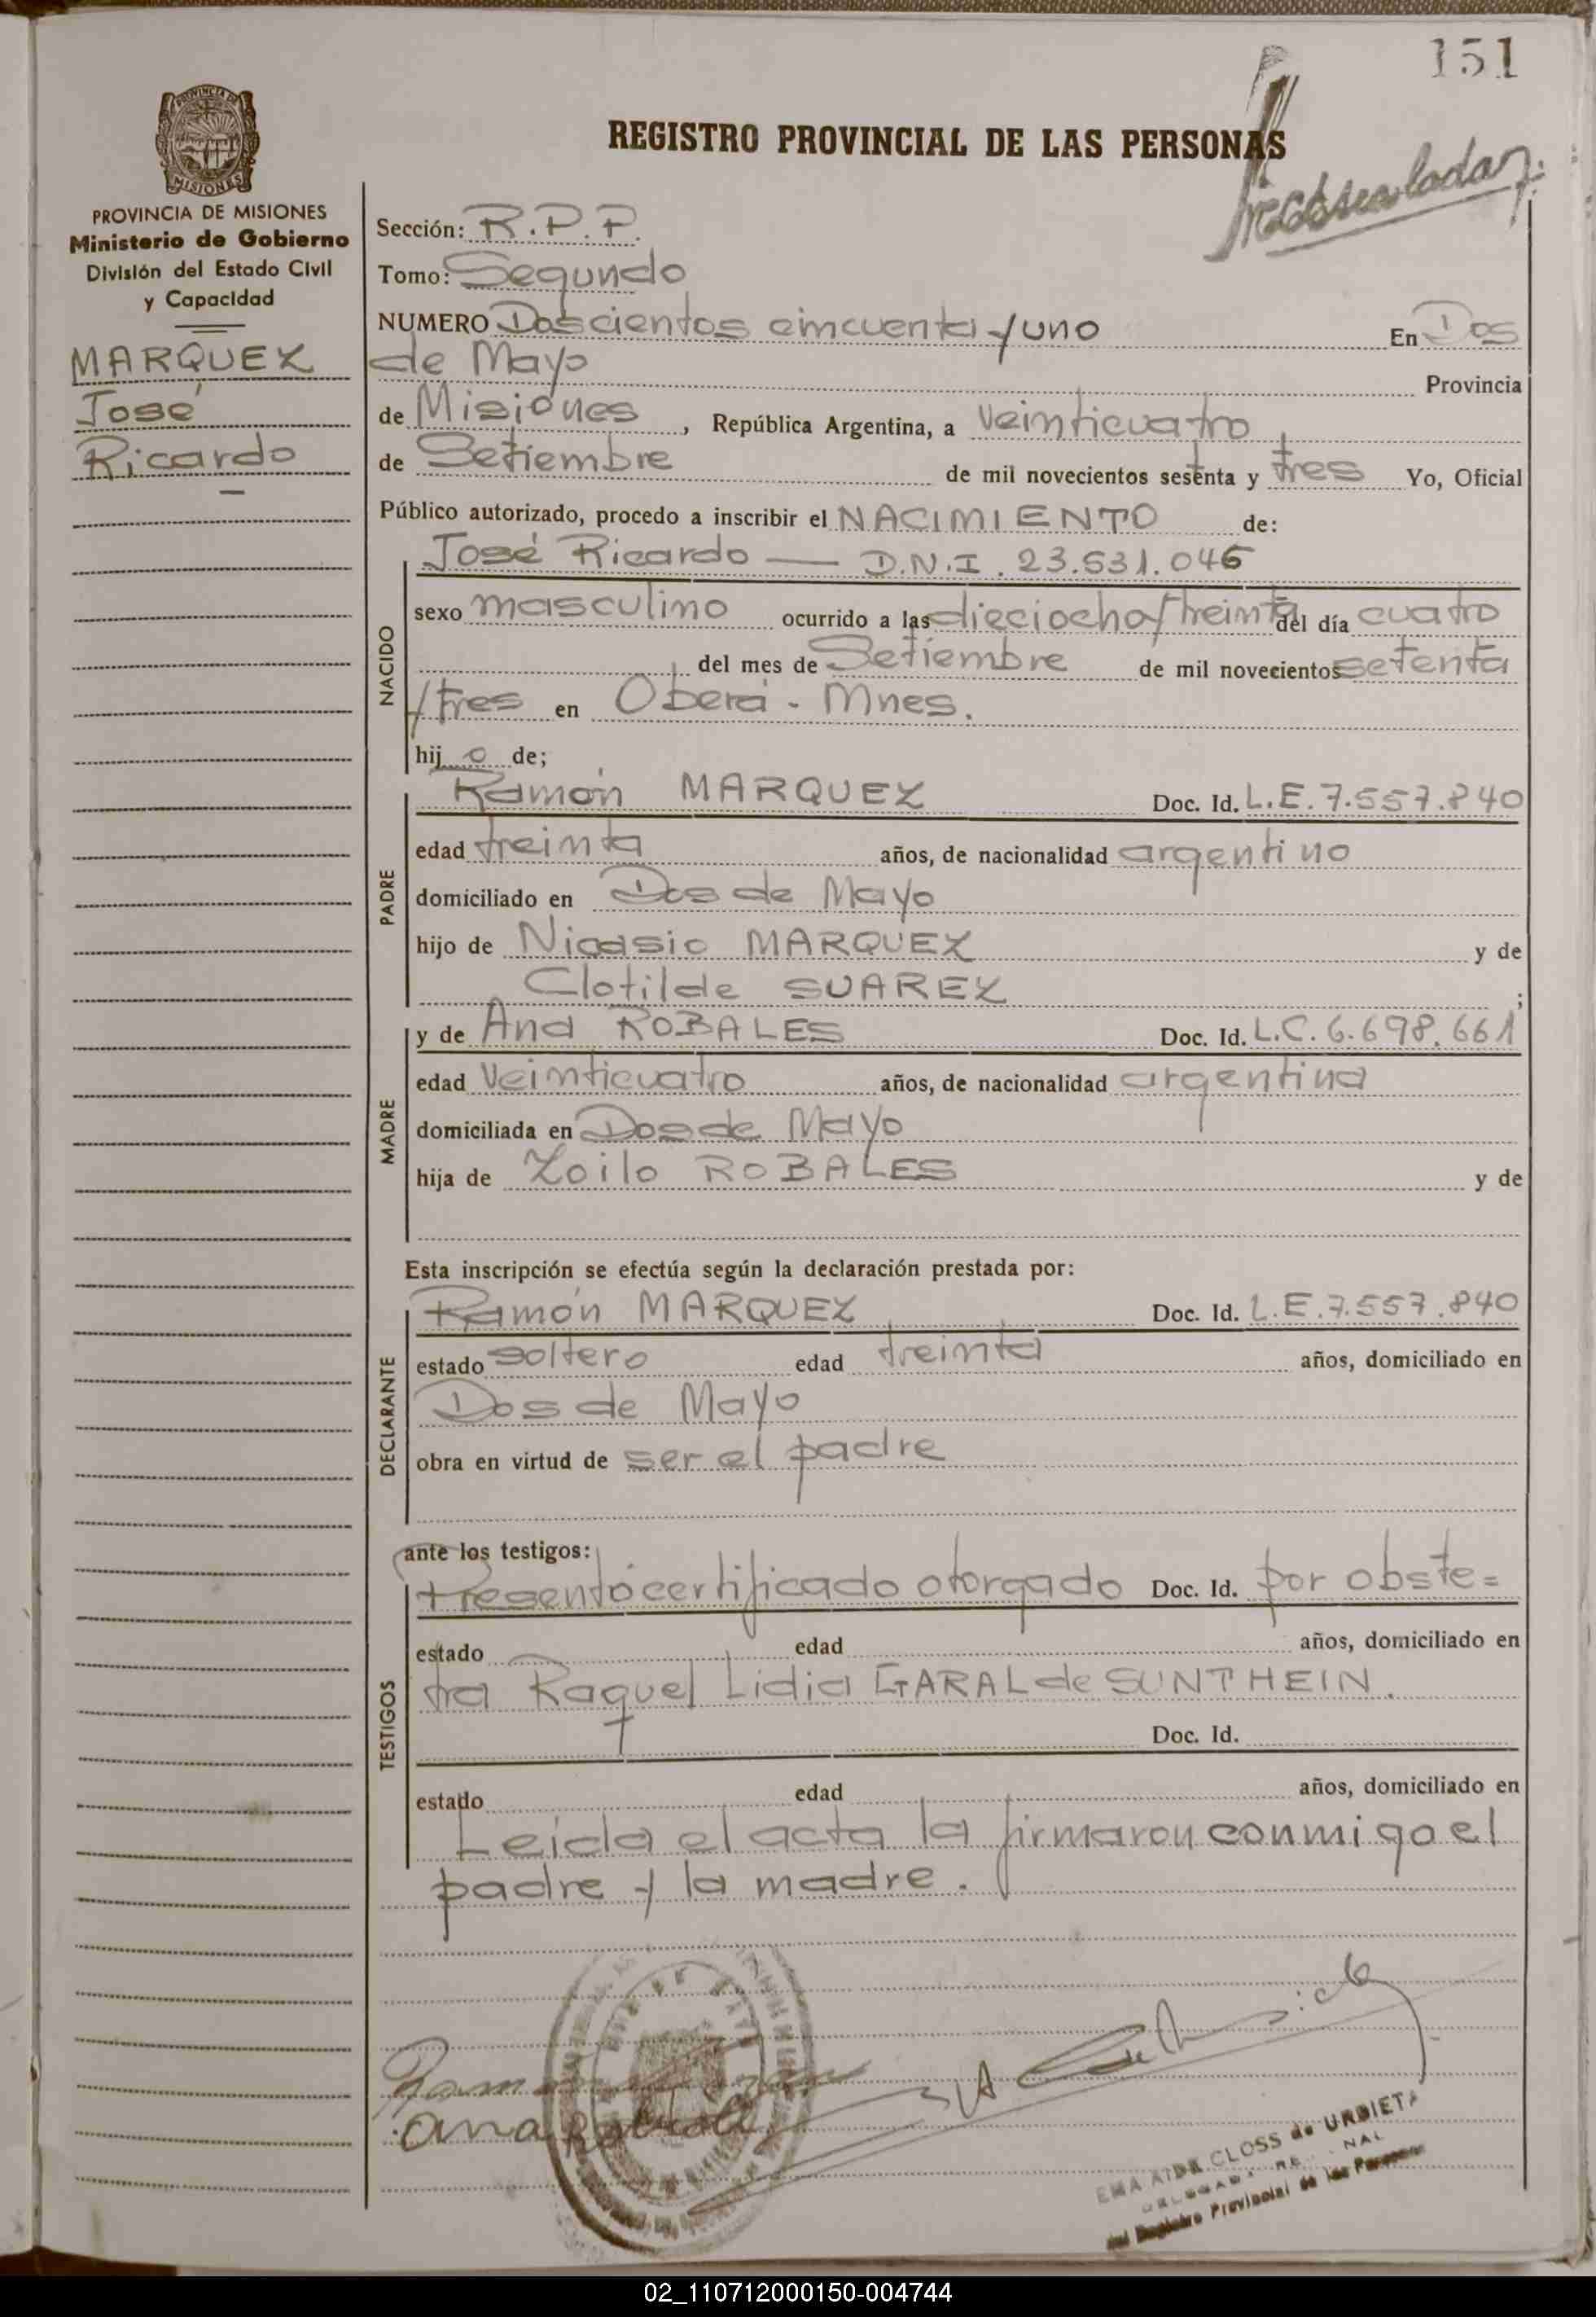 151
REGISTRO PROVINCIAL DE LAS PERSONAS
PROVINCIA DE MISIONES
Ministerio de Gobierno
División del Estado Civil
y Capacidad
MARQUEZ
José
Ricardo
Sección: R.P.P.
Tomo: Segundo
NUMERO Doscientos cincuenta y uno En Dos
de Mayo Provincia
de Misiones, República Argentina, a veinticuatro
de Setiembre de mil novecientos sesenta y tres Yo, Oficial
Público autorizado, procedo a inscribir el NACIMIENTO de:
NACIDO
José Ricardo — D.N.I. 23.531.046
sexo masculino ocurrido a las dieciocho y treinta del día cuatro
del mes de Setiembre de mil novecientos setenta
y tres en Oberá - Mnes.
hijo de;
PADRE
Ramón MARQUEZ Doc. Id. L.E. 7.557.840
edad treinta años, de nacionalidad argentino
domiciliado en Dos de Mayo
hijo de Nicasio MARQUEZ y de
Clotilde SUAREZ ;
MADRE
y de Ana ROBALES Doc. Id. L.C. 6.698.661
edad veinticuatro años, de nacionalidad argentina
domiciliada en Dos de Mayo
hija de Zoilo ROBALES y de
Esta inscripción se efectúa según la declaración prestada por:
DECLARANTE
Ramón MARQUEZ Doc. Id. L.E. 7.557.840
estado soltero edad treinta años, domiciliado en
Dos de Mayo
obra en virtud de ser el padre
ante los testigos:
TESTIGOS
Presentó certificado otorgado Doc. Id. por obste=
estado edad años, domiciliado en
tra Raquel Lidia GARAL de SUNTHEIN.
Doc. Id.
estado edad años, domiciliado en
Leida el acta la firmaron conmigo el
padre y la madre.
ana
EMA AIDA CLOSS de URBIETA
del Registro Provincial de las Personas
02_110712000150-004744